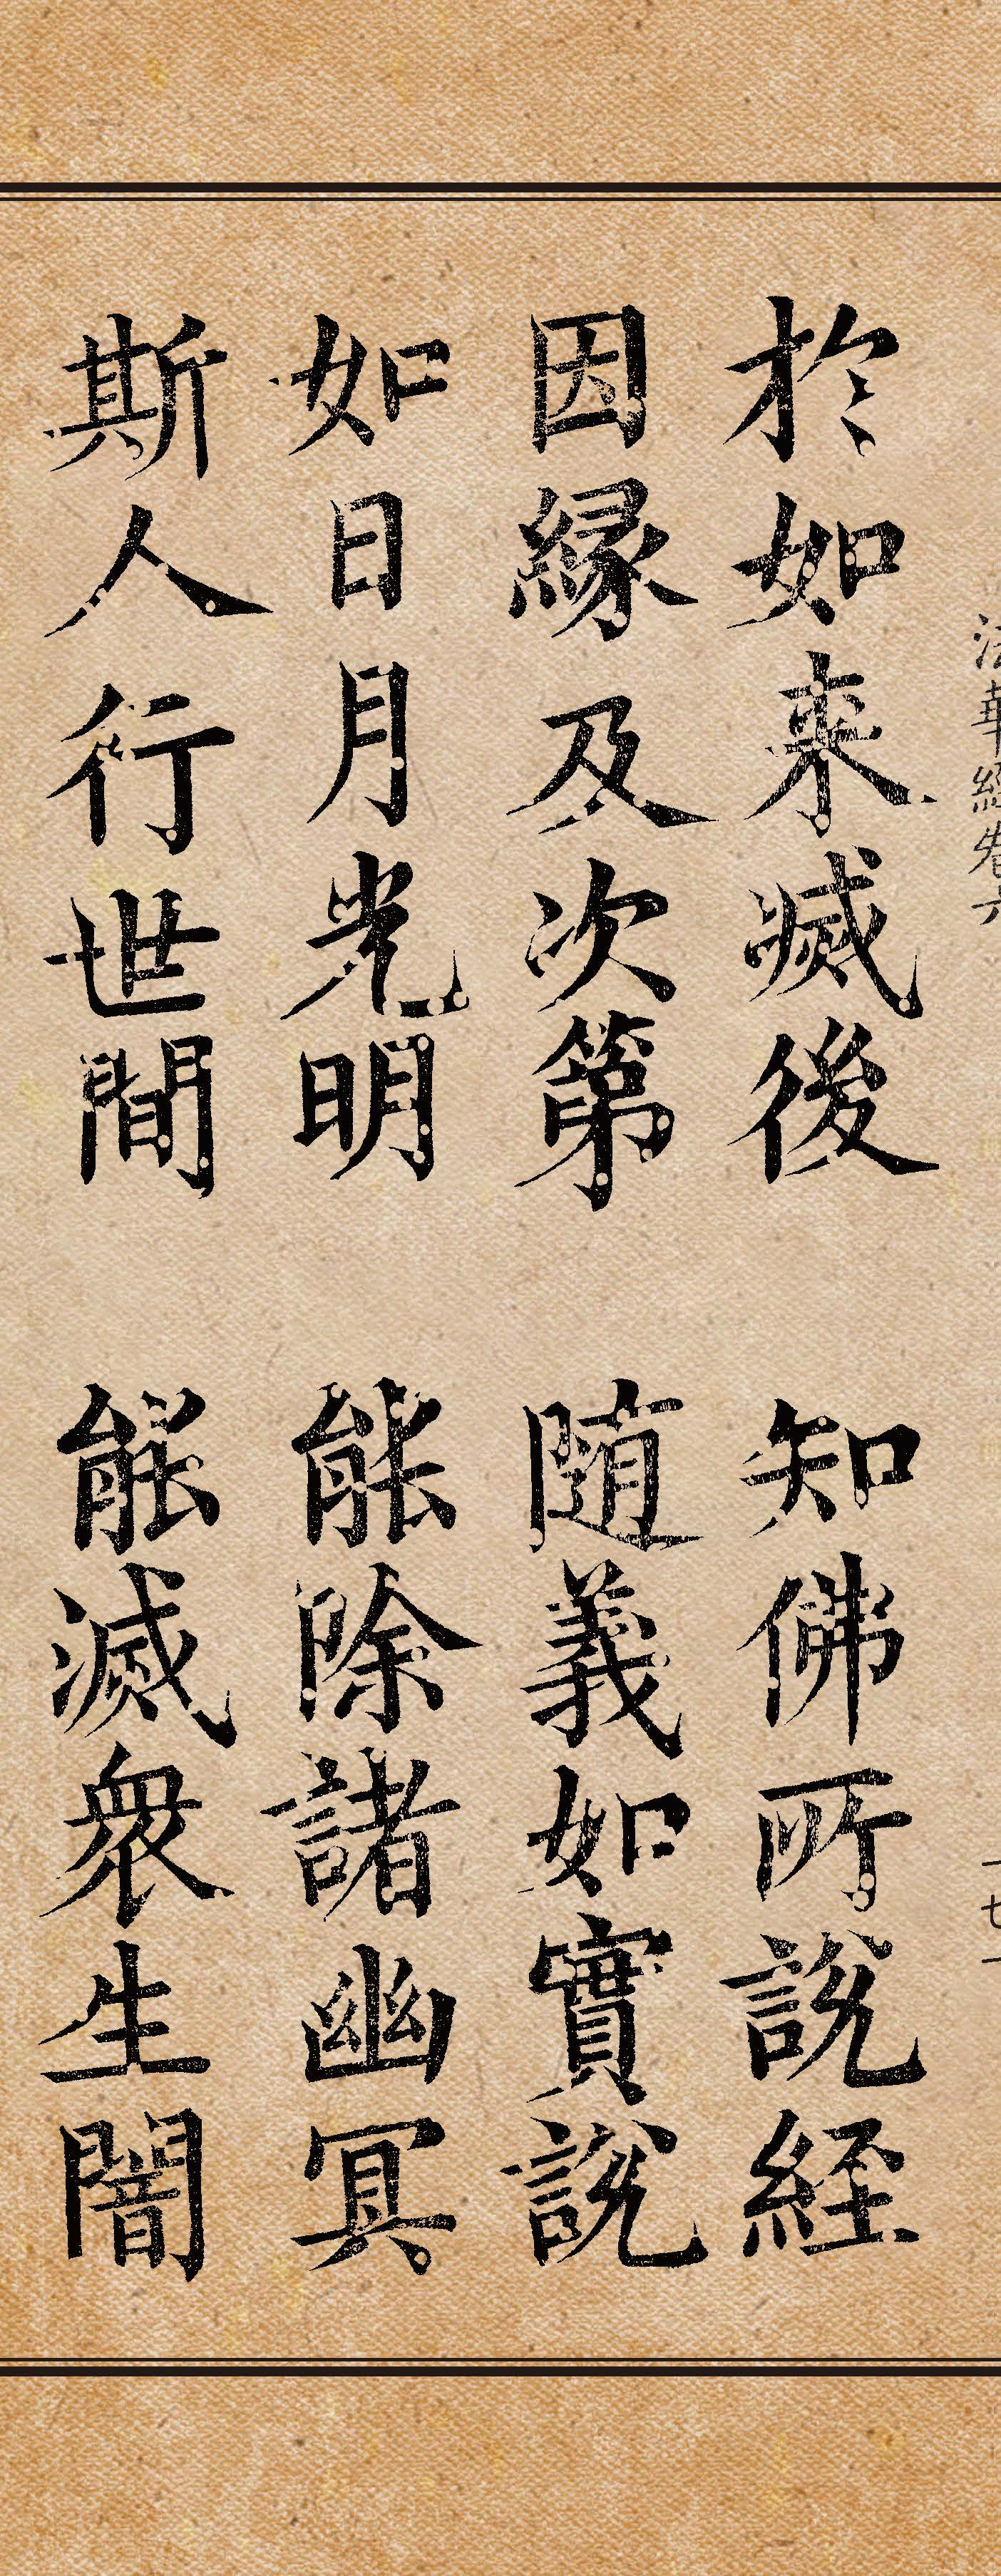 法華經卷六
於如来滅後 知佛所說経
因縁及次第 随義如實說
如日月光明 能除諸幽冥
斯人行世間 能滅衆生闇